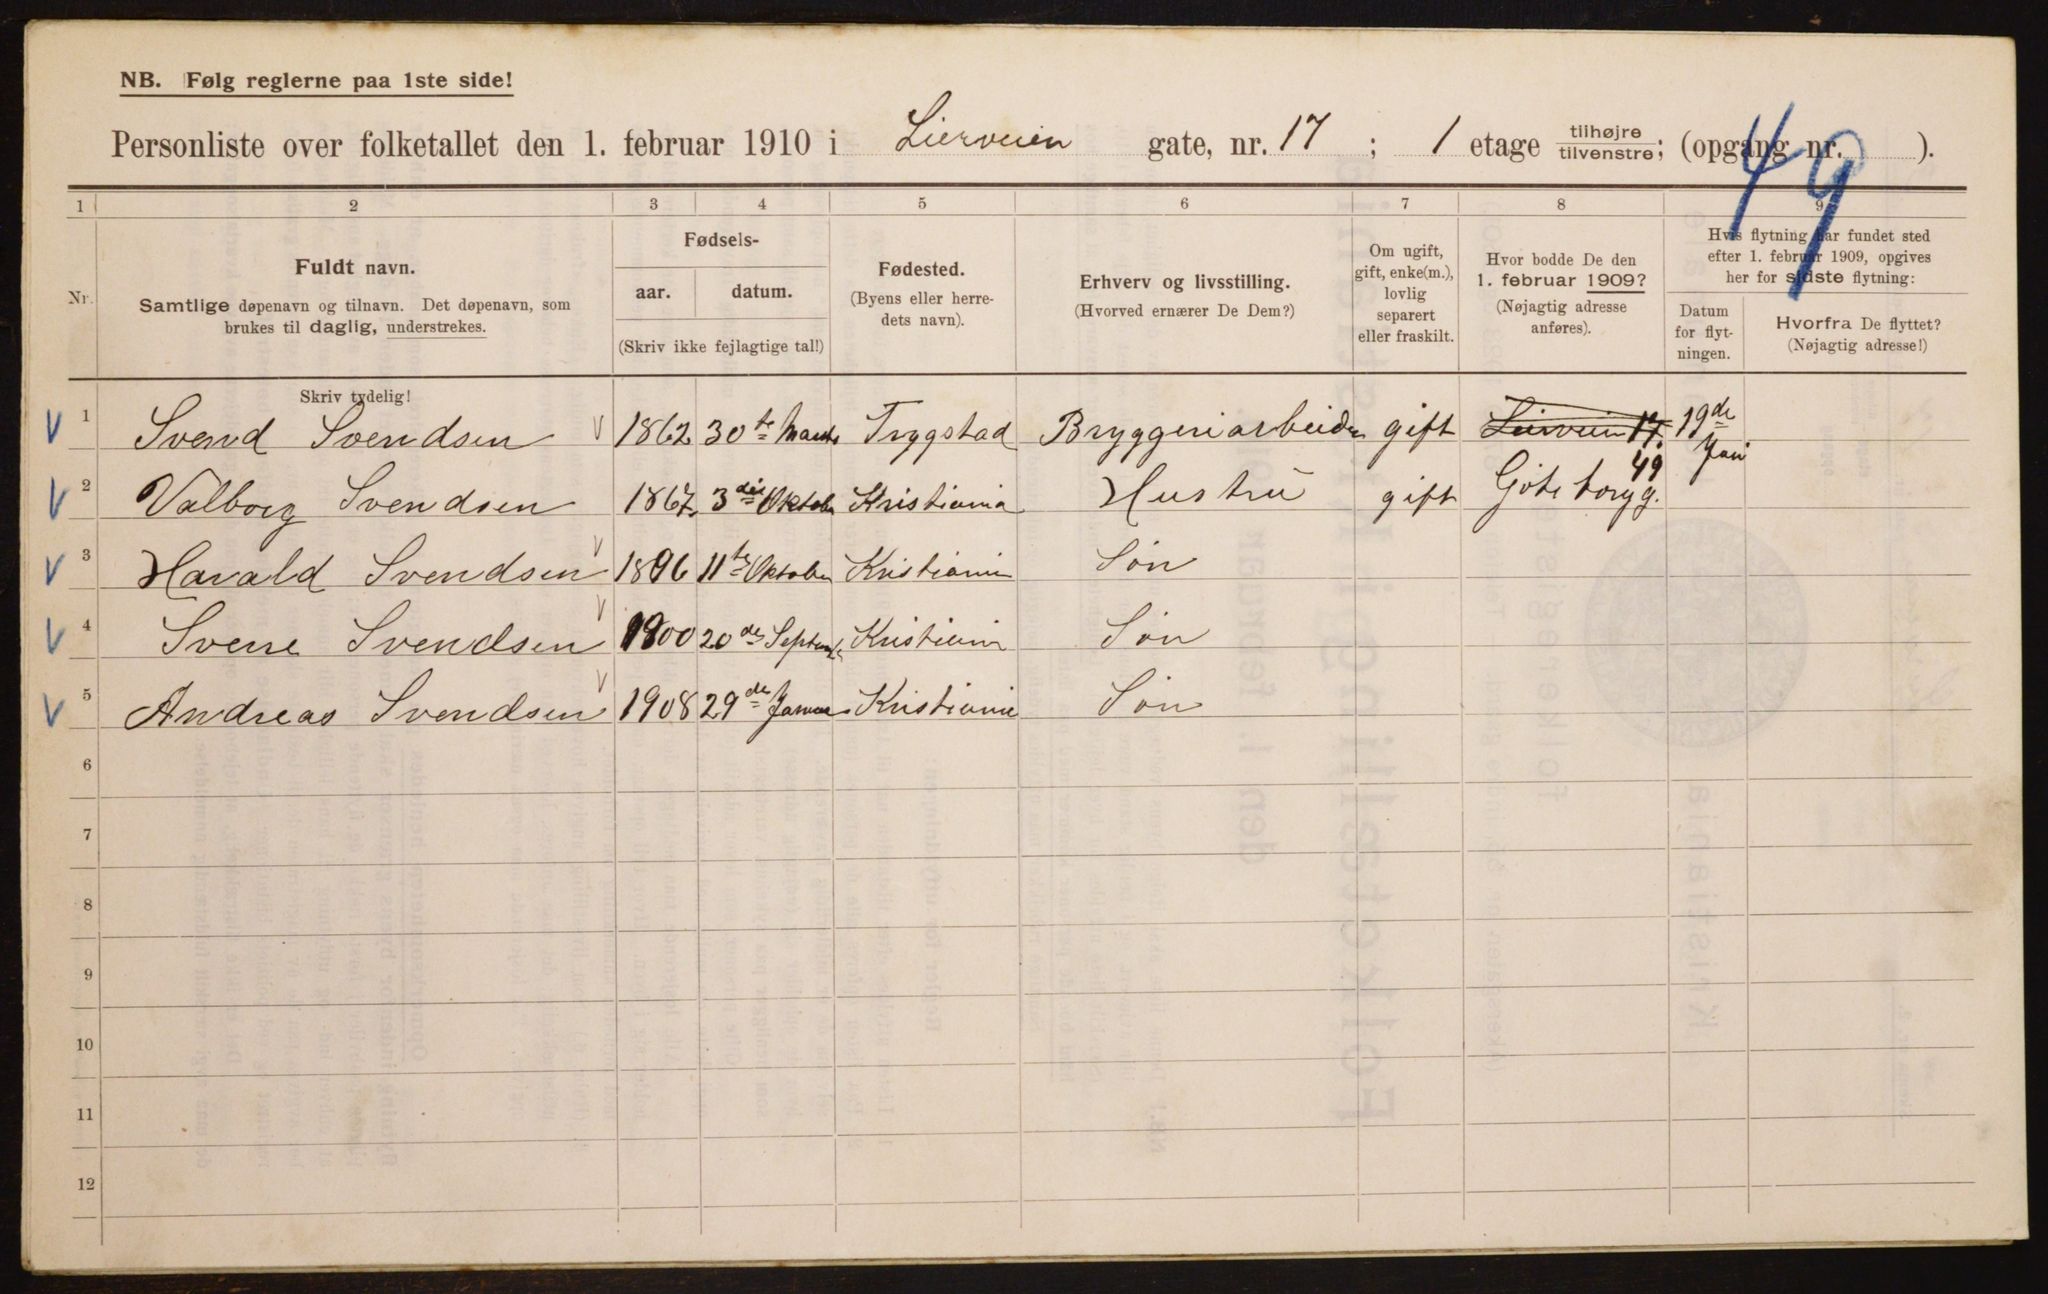 NB. Følg reglerne paa 1ste side!
Personliste over folketallet den 1. februar 1910 i Lierveien gate, nr. 17 ; 1 etage tilhøjre tilvenstre; (opgang nr. ).
49
1 2 3 4 5 6 7 8 9
Nr.
Fuldt navn.
Samtlige døpenavn og tilnavn. Det døpenavn, som
brukes til daglig, understrekes.
Fødsels-
aar. datum.
(Skriv ikke fejlagtige tal!)
Fødested.
(Byens eller herre-
dets navn).
Erhverv og livsstilling.
(Hvorved ernærer De Dem?)
Om ugift,
gift, enke(m.),
lovlig
separert
eller fraskilt.
Hvor bodde De den
1. februar 1909?
(Nøjagtig adresse
anføres).
Hvis flytning har fundet sted
efter 1. februar 1909, opgives
her for sidste flytning:
Datum
for flyt-
ningen.
Hvorfra De flyttet?
(Nøjagtig adresse!)
Skriv tydelig!
1 Svend Svendsen 1862 30te Marts Trygstad Bryggeriarbeider gift Lierveien 17. 19de Jan
2 Valborg Svendsen 1867 3die Oktober Kristiania Hustru gift Göteborgg. 49
3 Harald Svendsen 1896 11te Oktober Kristiania Søn
4 Sverre Svendsen 1900 20de Septemb Kristiania Søn
5 Andreas Svendsen 1908 29de Januar Kristiania Søn
6
7
8
9
10
11
12